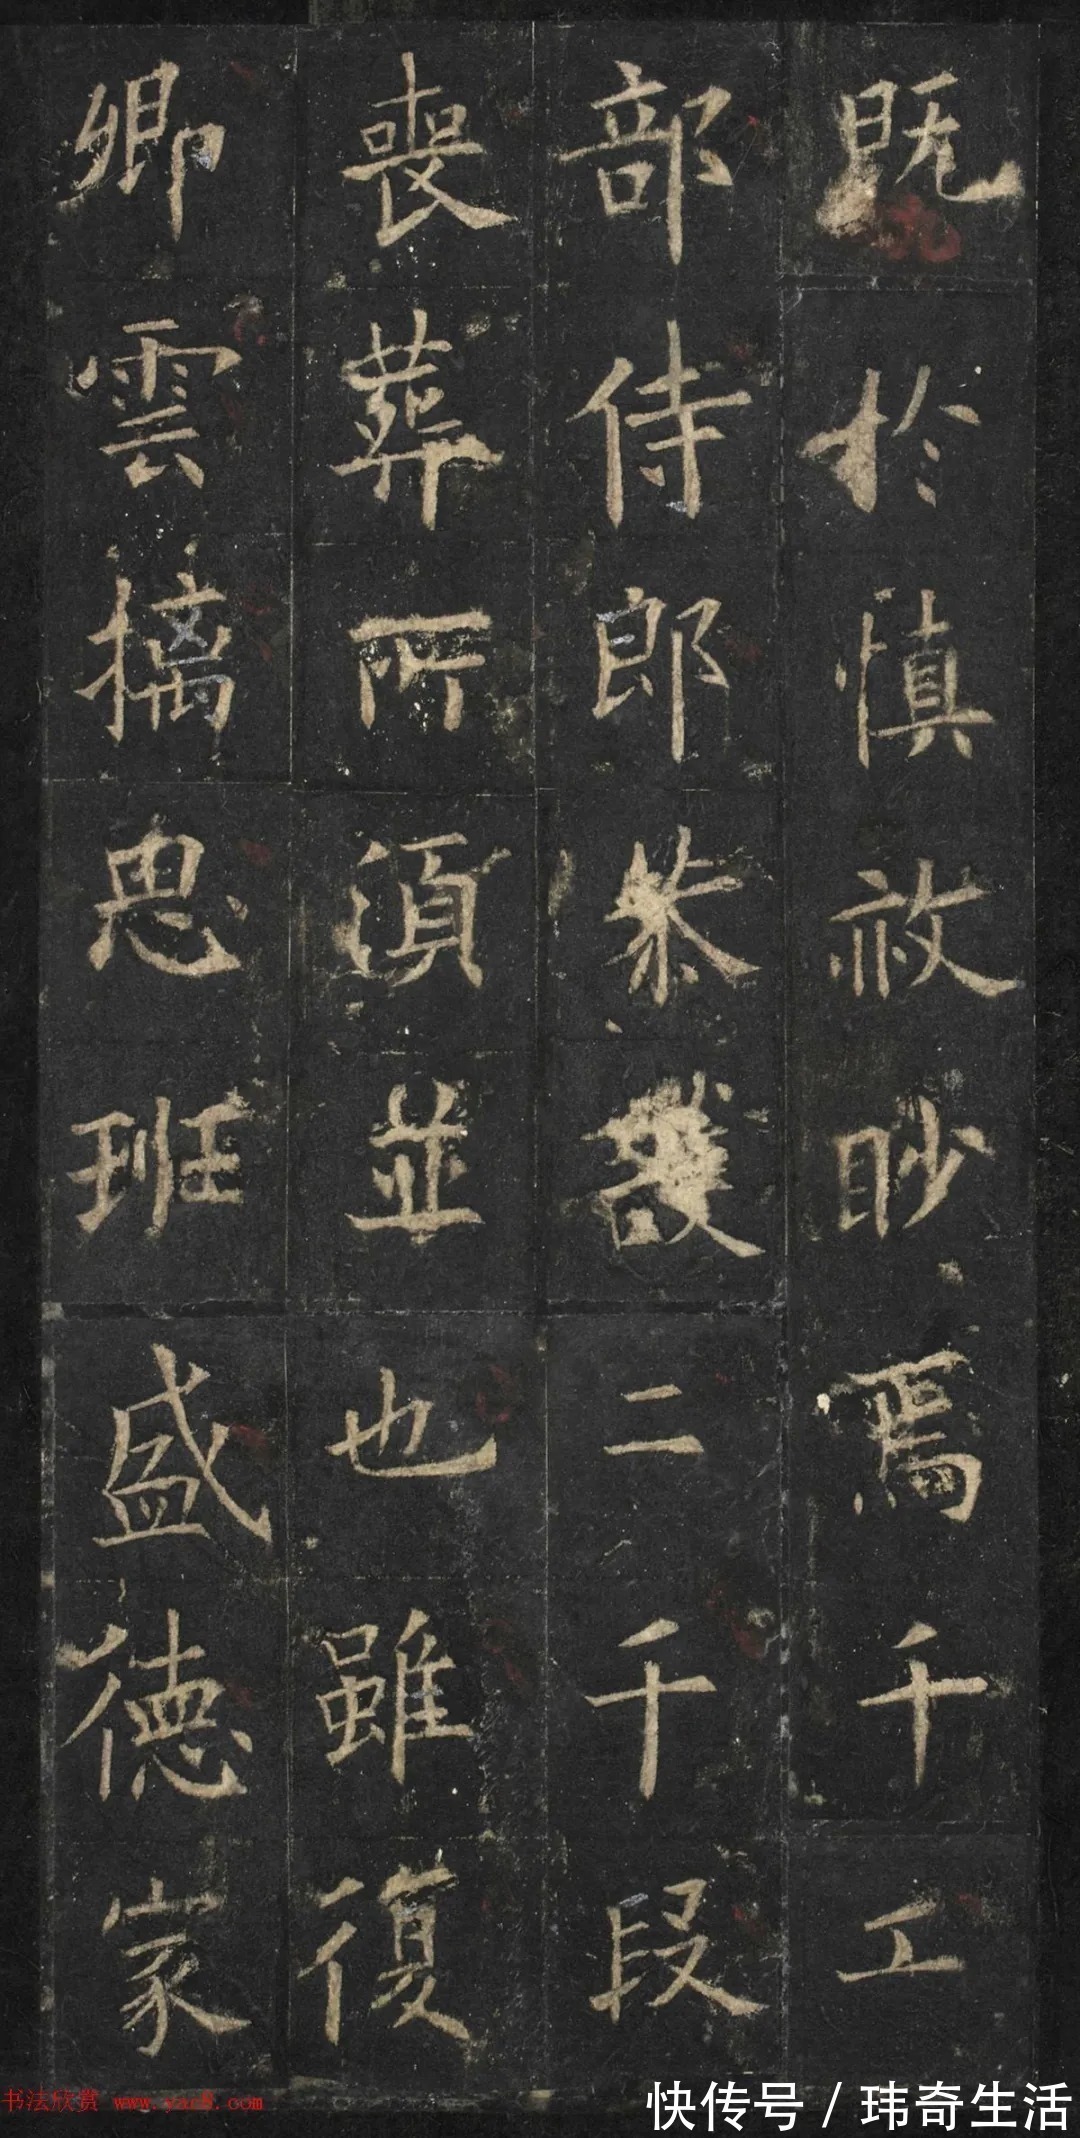 既於慎赦眇焉千工
部侍郎恭護二千段
喪葬所須並也雖復
卿雲摛思班盛德家
书法欣赏 www.yac8.com
快传号 / 玮奇生活